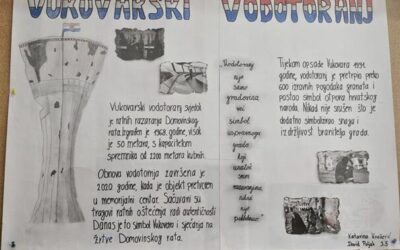 VUKOVARSKI VODOTORANJ
Vukovarski vodotoranj svjedok
je ratnih razaranja Domovinskog
rata. Izgrađen je 1968. godine, visok
je 50 metara, s kapacitetom
spremnika od 2200 metara kubnih.
Obnova vodotornja završena je
2020. godine, kada je objekt pretvoren
u memorijalni centar. Sačuvani su
tragovi ratnih oštećenja radi autentičnosti
Danas je to simbol sjećanja na
žrtve Domovinskog rata.
"Vodotoranj
nije
samo
građevina
već
simbol
grada
koji
nije
Tijekom opsade Vukovara 1991.
godine, vodotoranj je pretrpio preko
600 izravnih pogodaka granata i
postao simbol otpora hrvatskog
naroda. Nikad nije srušen što je
dodatno simboliziralo snagu i
izdržljivost branitelja grada.
Katarina
David Poljak 3.5